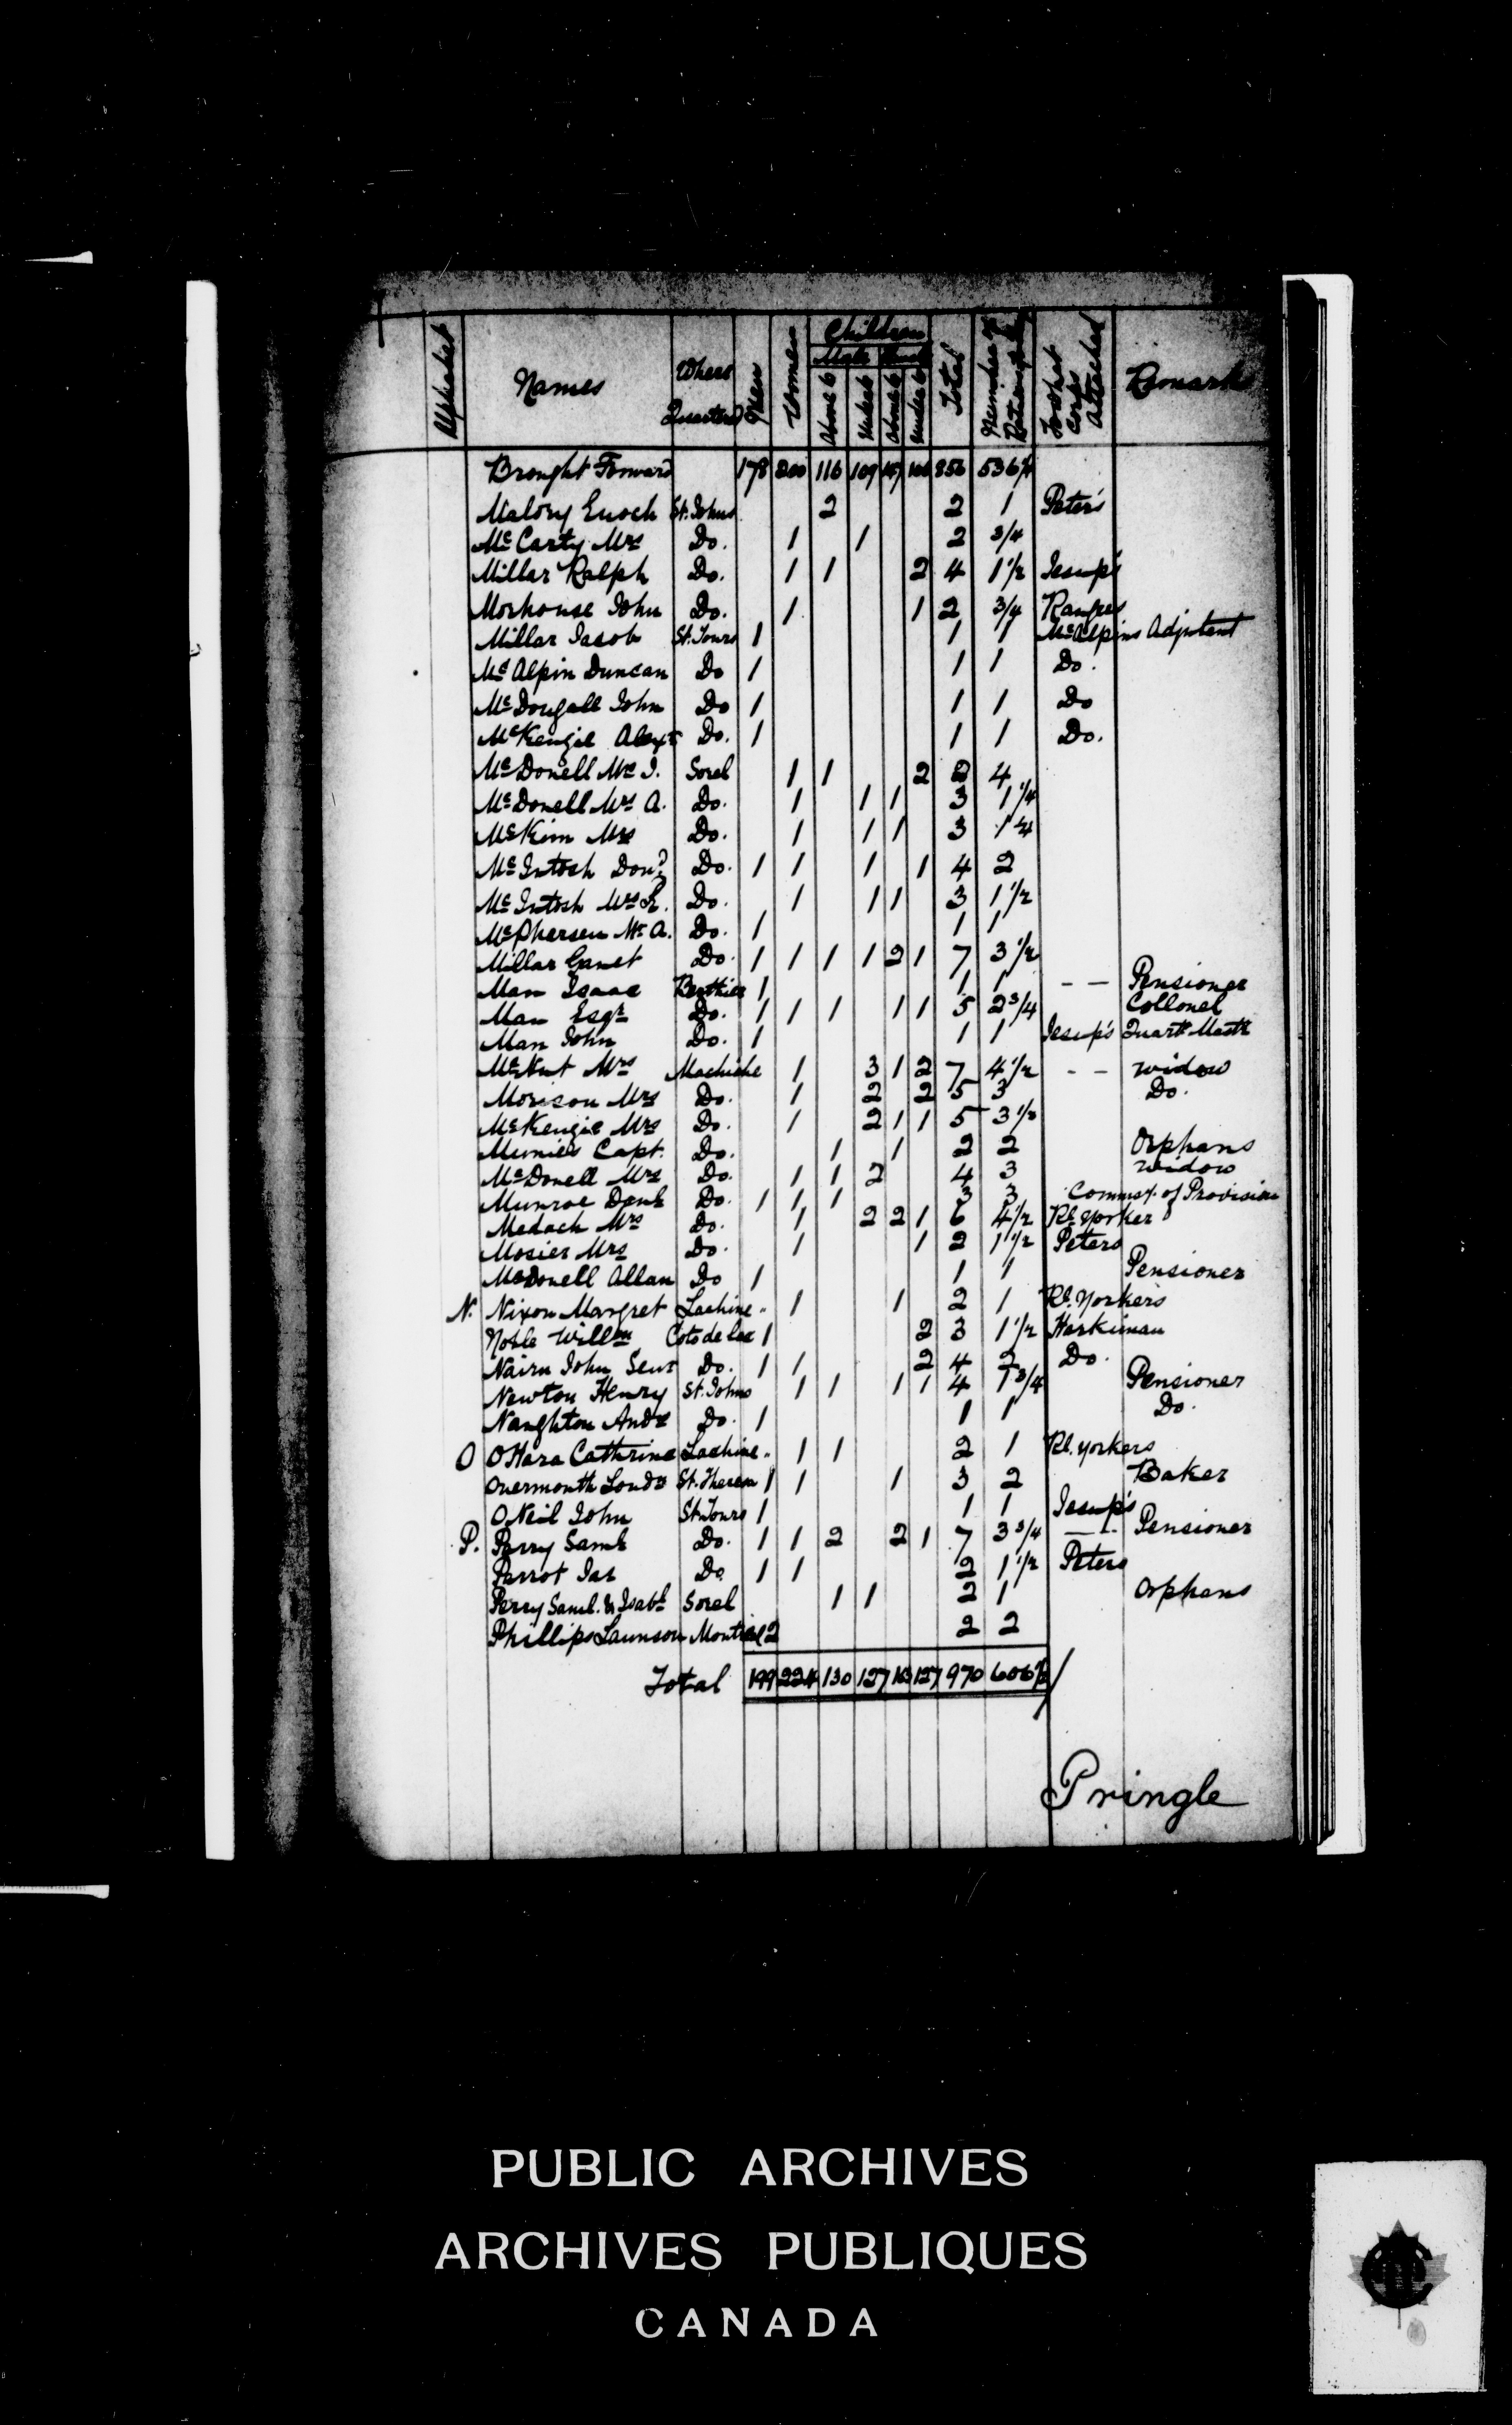 Alphabet Names Where Quartered Men Women Children Male Above 6 Under 6 Above 6 Under 6 Total Number of Rations To what Corps Attached Remarks
Brought Forward 178 200 116 109 856 536½
Malory Enoch St. Johns 2 2 1 Peter's
McCarty Mrs Do. 1 1 2 3/4
Millar Ralph Do. 1 1 2 4 1½ Jesup's
Morhouse John Do. 1 1 2 3/4 Rangers
Millar Jacob St. Tours 1 1 1 McAlpins Adjutant
McAlpin Duncan Do 1 1 1 Do.
McDougall John Do 1 1 1 Do
McKenzie Alexr Do. 1 1 1 Do.
McDonell Mrs J. Sorel 1 1 2 4
McDonell Mrs A. Do. 1 1 1 3 1¼
McKim Mrs Do. 1 1 1 3 1¼
McIntosh Dond Do. 1 1 1 1 4 2
McIntosh Mrs Do. 1 1 1 3 1½
McPhersen Mc A. Do. 1 1 1
Millar Do. 1 1 1 1 2 1 7 3½
Man Isaac Berthier 1 1 1 — — Pensioner
Man Esqr Do. 1 1 1 1 1 5 2¾ Collonel
Man John Do. 1 1 1 Jesup's Quartr Mastr
McNut Mrs Machiche 1 3 1 2 7 4½ — — Widow
Morison Mrs Do. 1 2 2 5 3 Do.
McKenzie Mrs Do. 1 2 1 1 5 3½
Capt. Do. 1 1 2 2 Orphans
McDonell Mrs Do. 1 1 2 4 3 Widow
Munroe Danl Do. 1 1 1 3 3 Commsy. of Provision
Medach Mrs Do. 1 2 2 1 6 4½ Rl. Yorker
Mosier Mrs Do. 1 1 2 1½ Peters
McDonell Allan Do 1 1 1 Pensioner
N. Nixon Margret Lachine " 1 1 2 1 Rl. Yorkers
Noble Willm Coto de Lac 1 2 3 1½ Harkiman
Nairn John Senr Do. 1 1 2 4 2 Do.
Newton Henry St. Johns 1 1 1 1 4 1¾ Pensioner
Naughton Andw Do. 1 1 1 Do.
O OHara Cathrine Lachine " 1 1 2 1 Rl. Yorkers
Overmonth St. Theresa 1 1 1 3 2 Baker
ONeil John St. Tours 1 1 1 Jesup's
P. Perry Saml Do. 1 1 2 2 1 7 3¾ — Pensioner
Parrot Jas Do 1 1 2 1½ Peters
Perry Saml. & Isabl Sorel 1 1 2 1 Orphans
Phillips Launson Montreal 2 2 2
Total 199 224 130 127 163 127 970 606½
Pringle
PUBLIC ARCHIVES
ARCHIVES PUBLIQUES
CANADA